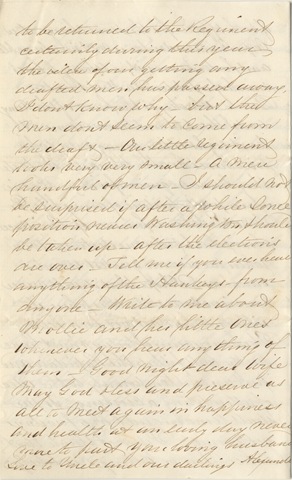 to be returned to the Regiment
certainly during this year
the idea of our getting any
drafted men has passed away
I don't know why - but some
men don't seem to come from
the draft - Our little regiment
looks very very small - A mere
handful of men - I should not
be surprised if after a while some
position near Washington should
be taken up - after the elections
are over - Tell me if you ever hear
anything of the from
anyone - Write to me about
Mollie and her little ones
whenever you hear anything of
them - Good night dear wife
May God bless and preserve us
all to meet again in happiness
and health at an early day never
more to part Your loving husband
Love to and our darlings